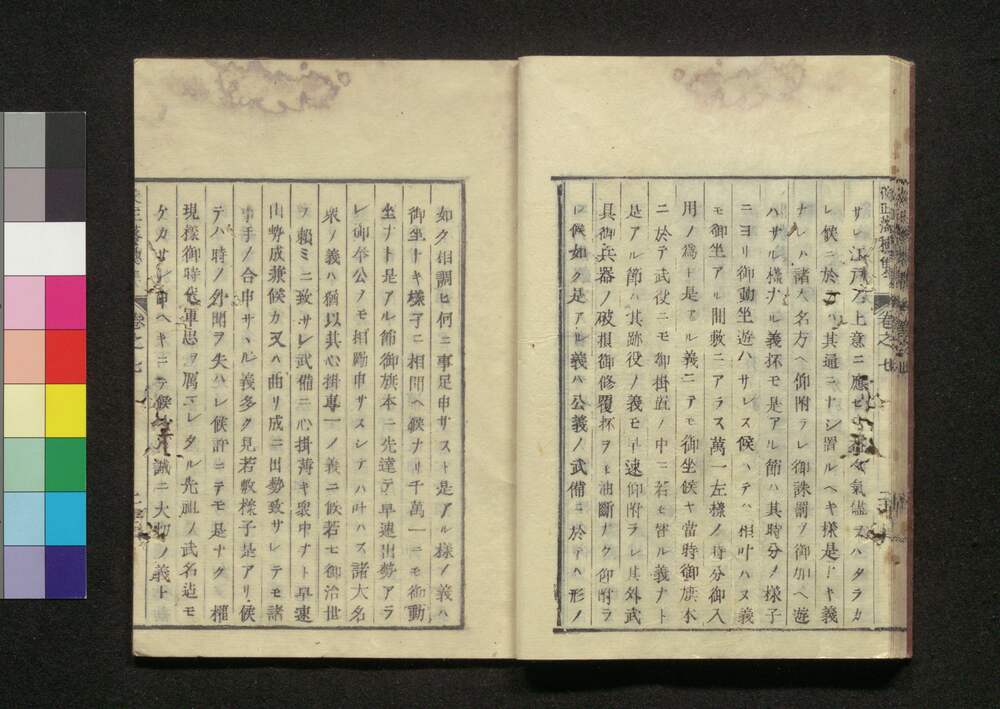 サレ江戸ノ上意ニ應セス我々氣儘ヲハタラカ
レ候ニ於テハ其通ニナシ置ルヘキ様是ナキ義
ナレハ諸大名方ヘ仰附ラレ御誅罰ヲ御加ヘ遊
ハサル様ナル義抔モ是アル節ハ其時分ノ様子
ニヨリ御動坐遊ハサレス候ハテハ相叶ハヌ義
モ御坐アル間敷ニアラス萬一左様ノ時分御入
用ノ為ト是アル義ニテモ御坐候ヤ當時御旗本
ニ於テ武役ニモ御掛置ノ中ニ若モ皆ル義ナト
是アル節ハ其跡役ノ義モ早速仰附ラレ其外武
具御兵器ノ破損御修覆抔ヲモ油斷ナク仰附ラ
レ候如ク是アル義ハ公義ノ武備ニ於テハ形ノ
卷之七
如ク相調ヒ何ニ事足申サスト是アル様ノ義ハ
御坐ナキ様子ニ相聞ヘ候ナリ千萬一ニモ御動
坐ナト是アル節御旗本ニ先達テ早速出勢アラ
レ御奉公ノモ相勤申サスシテハ叶ハス諸大名
衆ノ義ハ猶以其心掛專一ノ義ニ候若七御治世
ヲ頼ミニ致サレ武備ニ心掛薄キ衆中ナト早速
山勢成兼候カ又ハ曲リ成ニ出勢致サレテモ諸
事手ノ合申サヽル義多ク見若敷様子是アリ候
テハ時ノ外聞ヲ失ハレ候計ニテモ是ナク權
現様御時代軍忠ヲ厲マレタル先祖ノ武名迄モ
ケカサレ申ヘキニテ候ヘハ誠ニ大切ノ義ト
卷之七